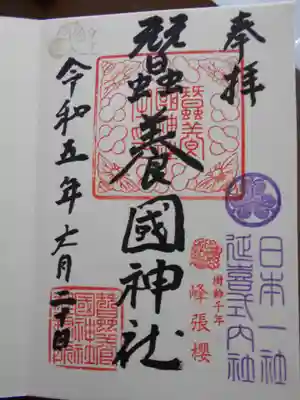 奉拝
日本一社
延喜式内社
樹齢千年
峰張櫻
蠶養國神社
令和五年六月二十日